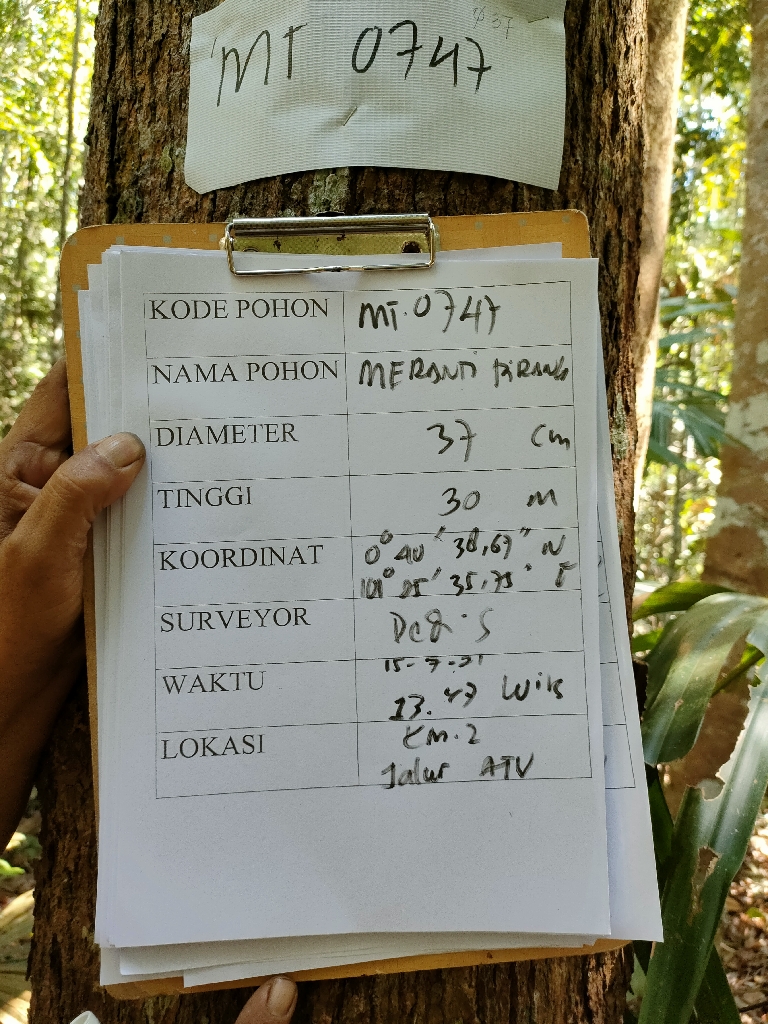 Ø 37
MT 0747
KODE POHON MT.0747
NAMA POHON MERANTI
DIAMETER 37 Cm
TINGGI 30 M
KOORDINAT 0° 40' 38,67" N
101° 25' 35,75" E
SURVEYOR
WAKTU 15-7-21
13.47 Wib
LOKASI KM.2
Jalur ATV